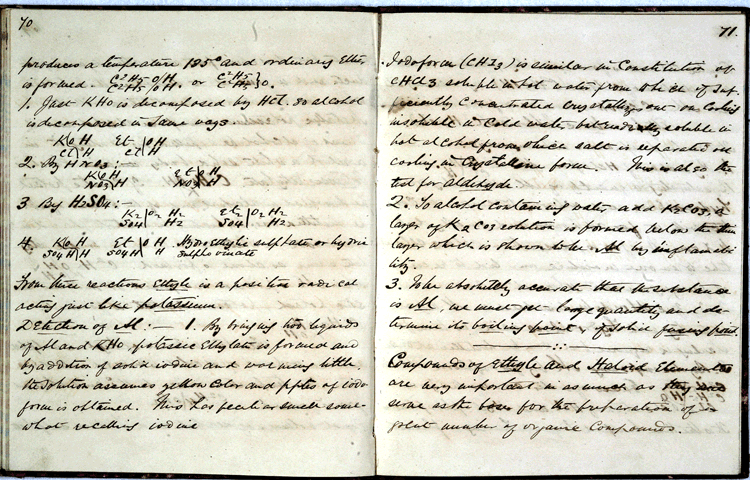 70
produces a temperature 135° and ordinary Ether
is formed. C2H5 O/H C2H5 O/H. or C2H5 C2H5 } O.
1. Just KHO is decomposed by HCl. so alcohol
is decomposed in same ways.
K|O H Et |O H
Cl|H Cl|H
2. By HNO3:—
K|O H Et|O H
NO3|H NO3|H
3 By H2SO4:—
K2|O2 H2 Et2|O2 H2
SO4|H2 SO4|H2
4. K|O H Et |O H Hydro Ethylic sulphate or hydric
SO4H|H SO4H|H sulpho vinate
From these reactions Ethyle is a positive radical
acting just like potassium.
Detection of Al:— 1. By bringing two liquids
of Al and KHO, potassic Ethylate is formed and
by addition of solid iodine and warming little
the solution assumes yellow color and pptes of iodo
form is obtained. This has peculiar smell some
what recalling iodine
71.
Iodoform (CHI3) is similar in Constitution of
CHCl3 soluble in hot water from the of suf-
ficiently Concentrated Crystallizing out on Cooling
insoluble in Cold water but readily soluble in
hot alcohol from which salt is separated on
cooling in Crystalline form. This is also the
test for aldehyde.
2. To alcohol containing water add K2CO3, a
layer of K2CO3 solution is formed below the thin
layer which is shown to be Al by inflamabi
lity.
3. To be absolutely accurate that the substance
is Al, we must get large quantity and de-
termine its boiling point, if solid fusing point.
Compounds of Ethyle and Haloid Elements
are very important in as much as they are
serve as the base for the preparation of a
great number of organic Compounds.